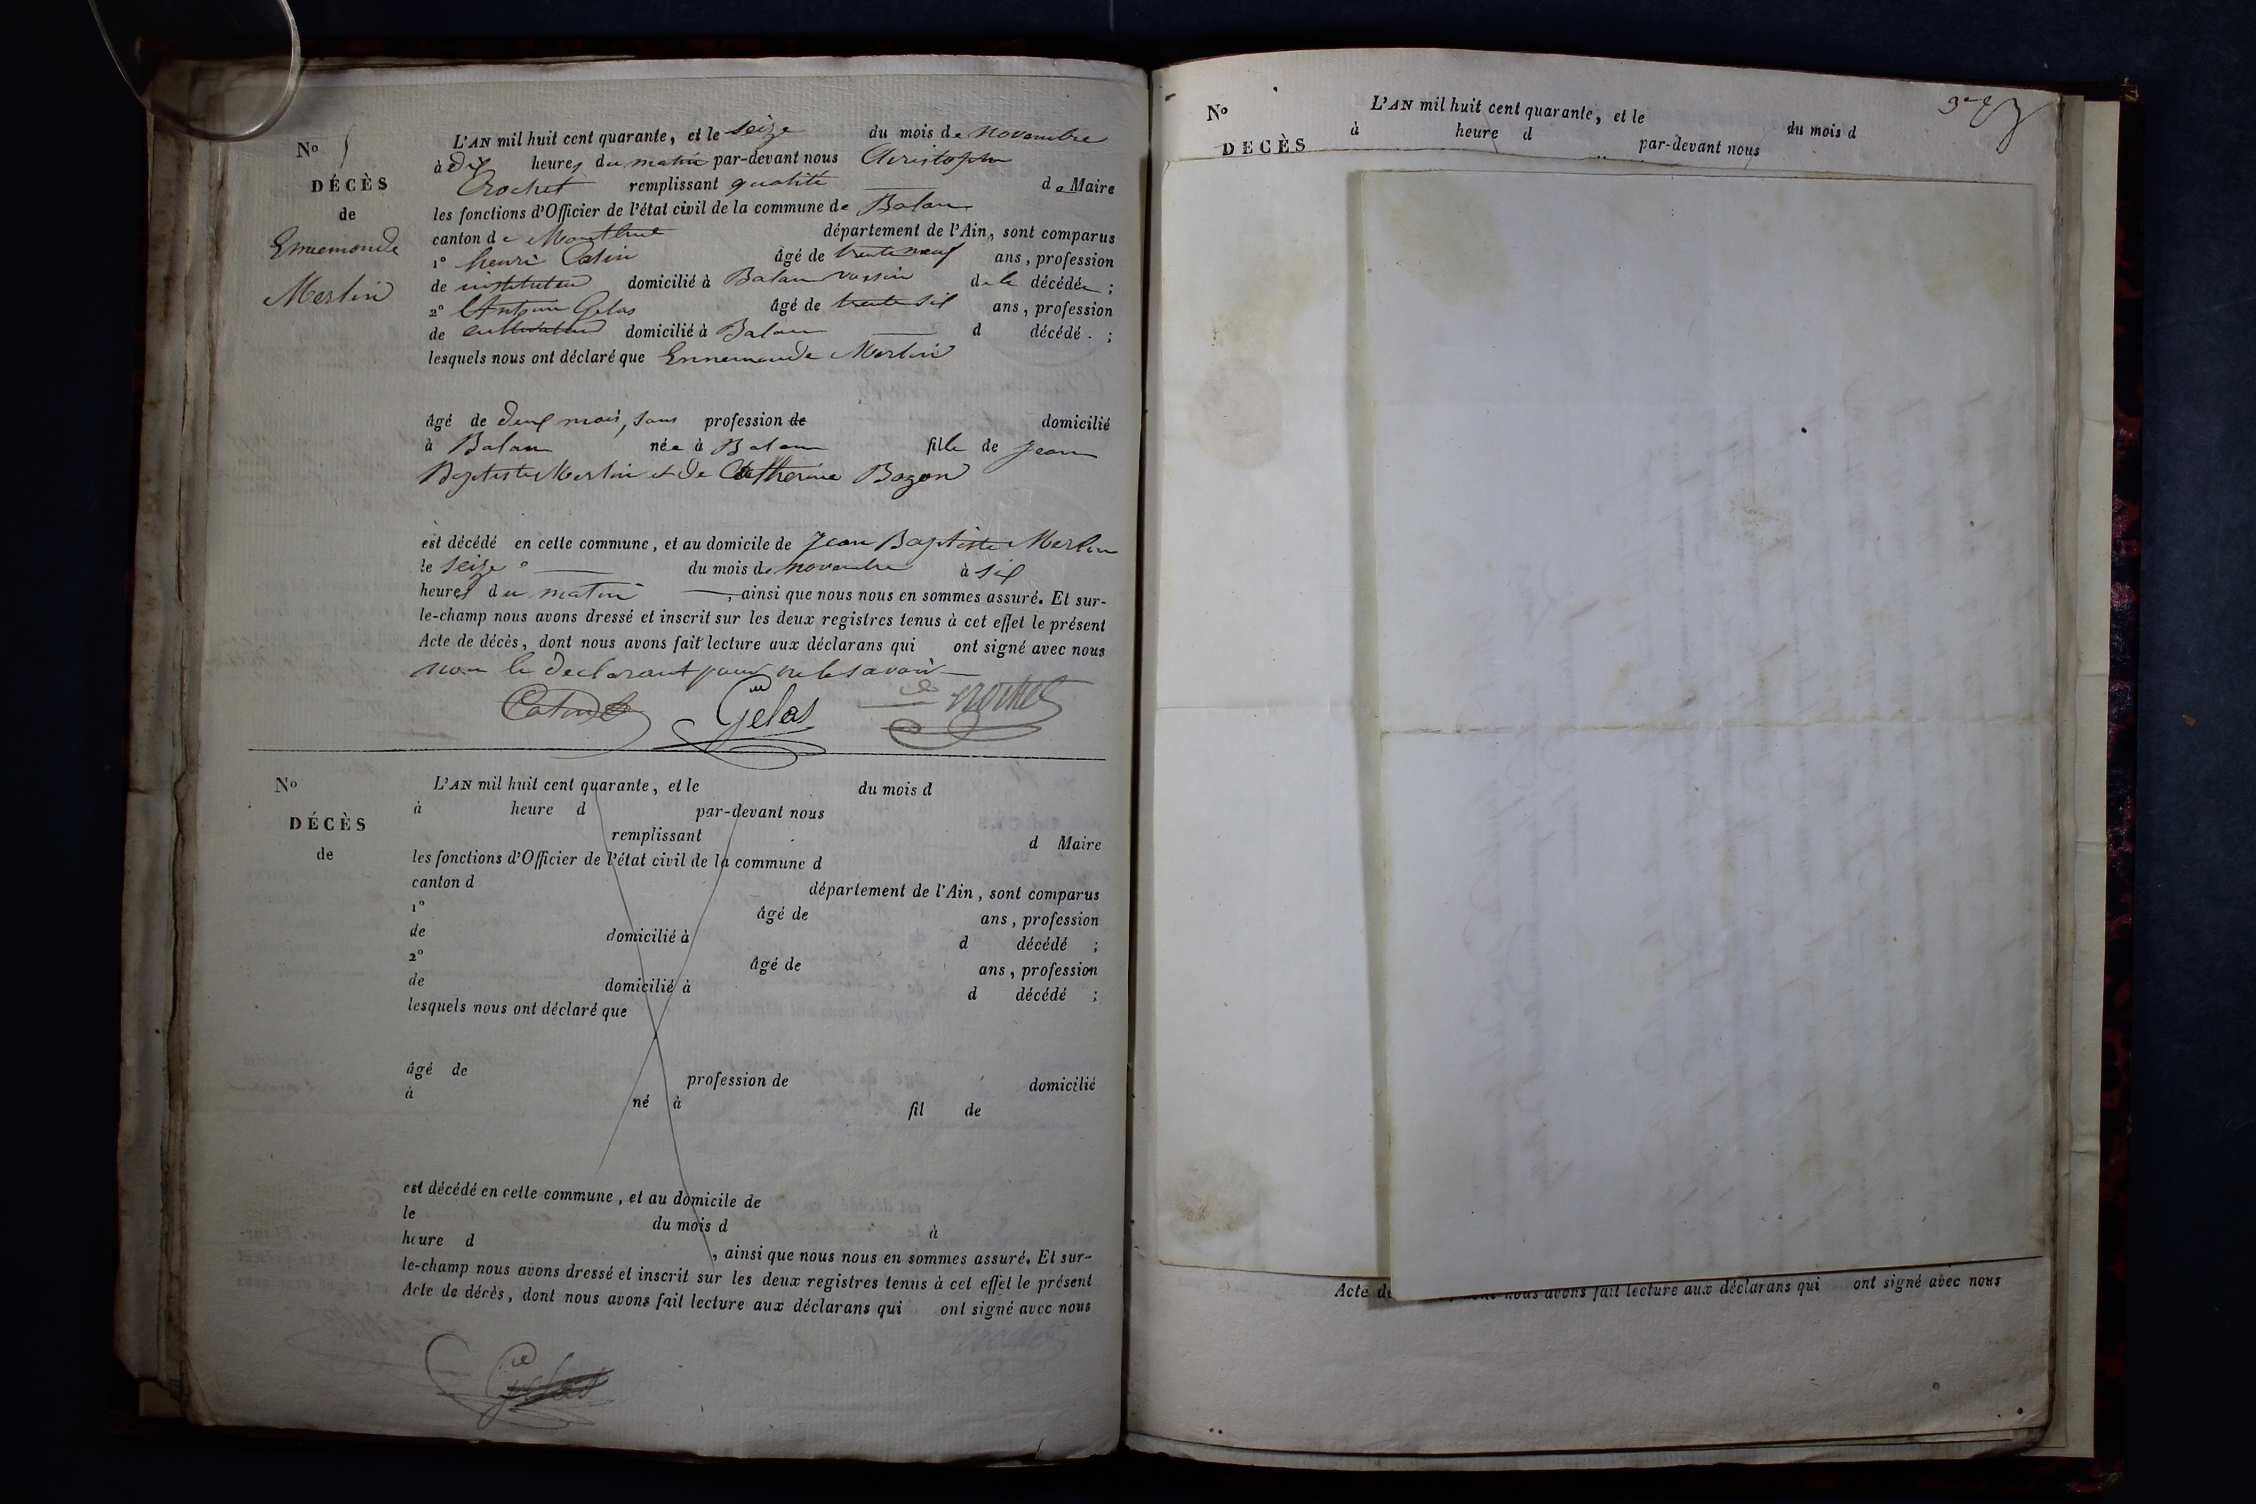 N° 5
DÉCÈS
de
Ennemonde
Merlin
L'AN mil huit cent quarante, et le seize du mois de novembre
à dix heures du matin par-devant nous Christophe
Crochet remplissant qualité de Maire
les fonctions d'Officier de l'état civil de la commune de Balan
canton de Montluel département de l'Ain, sont comparus
1° henri Catin âgé de trente neuf ans, profession
de instituteur domicilié à Balan voisin de la décédée ;
2° Antoine Gelas âgé de trente six ans, profession
de cultivateur domicilié à Balan d décédé . ;
lesquels nous ont déclaré que Ennemonde Merlin
âgé de deux mois, sans profession de domicilié
à Balan née à Balan fille de Jean
Baptiste Merlin et de Catherine Bozon
est décédé en cette commune, et au domicile de Jean Baptiste Merlin
le seize du mois de novembre à six
heures du matin , ainsi que nous nous en sommes assuré. Et sur-
le-champ nous avons dressé et inscrit sur les deux registres tenus à cet effet le présent
Acte de décès, dont nous avons fait lecture aux déclarans qui ont signé avec nous
non le declarant pour ne le savoir
Gelas Crochet
N°
DÉCÈS
de
L'AN mil huit cent quarante, et le du mois d
à heure d par-devant nous
remplissant d Maire
les fonctions d'Officier de l'état civil de la commune d
canton d département de l'Ain, sont comparus
1° âgé de ans, profession
de domicilié à d décédé ;
2° âgé de ans, profession
de domicilié à d décédé ;
lesquels nous ont déclaré que
âgé de profession de domicilié
à né à fil de
est décédé en cette commune, et au domicile de
le du mois d à
heure d , ainsi que nous nous en sommes assuré. Et sur-
le-champ nous avons dressé et inscrit sur les deux registres tenus à cet effet le présent
Acte de décès, dont nous avons fait lecture aux déclarans qui ont signé avec nous
Gelas
N°
DÉCÈS
L'AN mil huit cent quarante, et le du mois d
à heure d par-devant nous
Acte de nous avons fait lecture aux déclarans qui ont signé avec nous